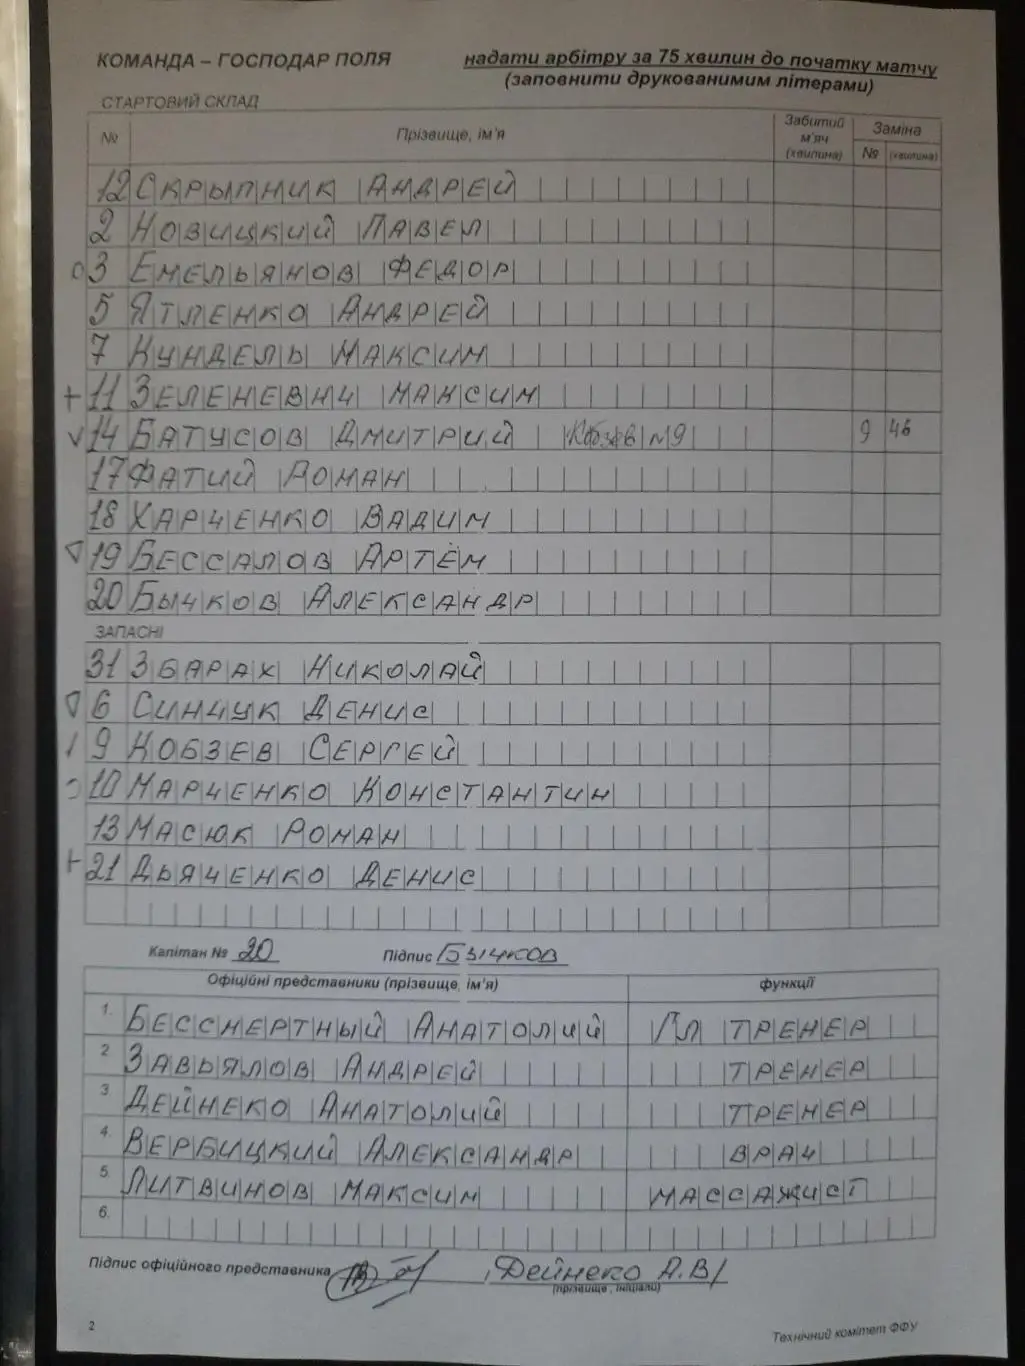 КОМАНДА – ГОСПОДАР ПОЛЯ
надати арбітру за 75 хвилин до початку матчу
(заповнити друкованими літерами)
СТАРТОВИЙ СКЛАД
№ Прізвище, ім'я Забитий м'яч (хвилина) Заміна № (хвилина)
12 Скрыпник Андрей
2 Новицкий Павел
3 Емельянов Федор
5 Ятленко Андрей
7 Кундель Максим
+ 11 Зеленевич Максим
v 14 Батусов Дмитрий Кобзев №9 9 46
17 Фатий Роман
18 Харченко Вадим
19 Бессалов Артём
20 Бычков Александр
ЗАПАСНІ
31 Збарах Николай
6 Синчук Денис
9 Кобзев Сергей
10 Марченко Константин
13 Масюк Роман
21 Дьяченко Денис
Капітан № 20 Підпис Бычков
Офіційні представники (прізвище, ім'я) функції
1. Бессмертный Анатолий Гл тренер
2 Завьялов Андрей тренер
3 Дейнеко Анатолий тренер
4. Вербицкий Александр врач
5. Литвинов Максим массажист
6.
Підпис офіційного представника Дейнеко А.В/
(прізвище, ініціали)
2
Технічний комітет ФФУ